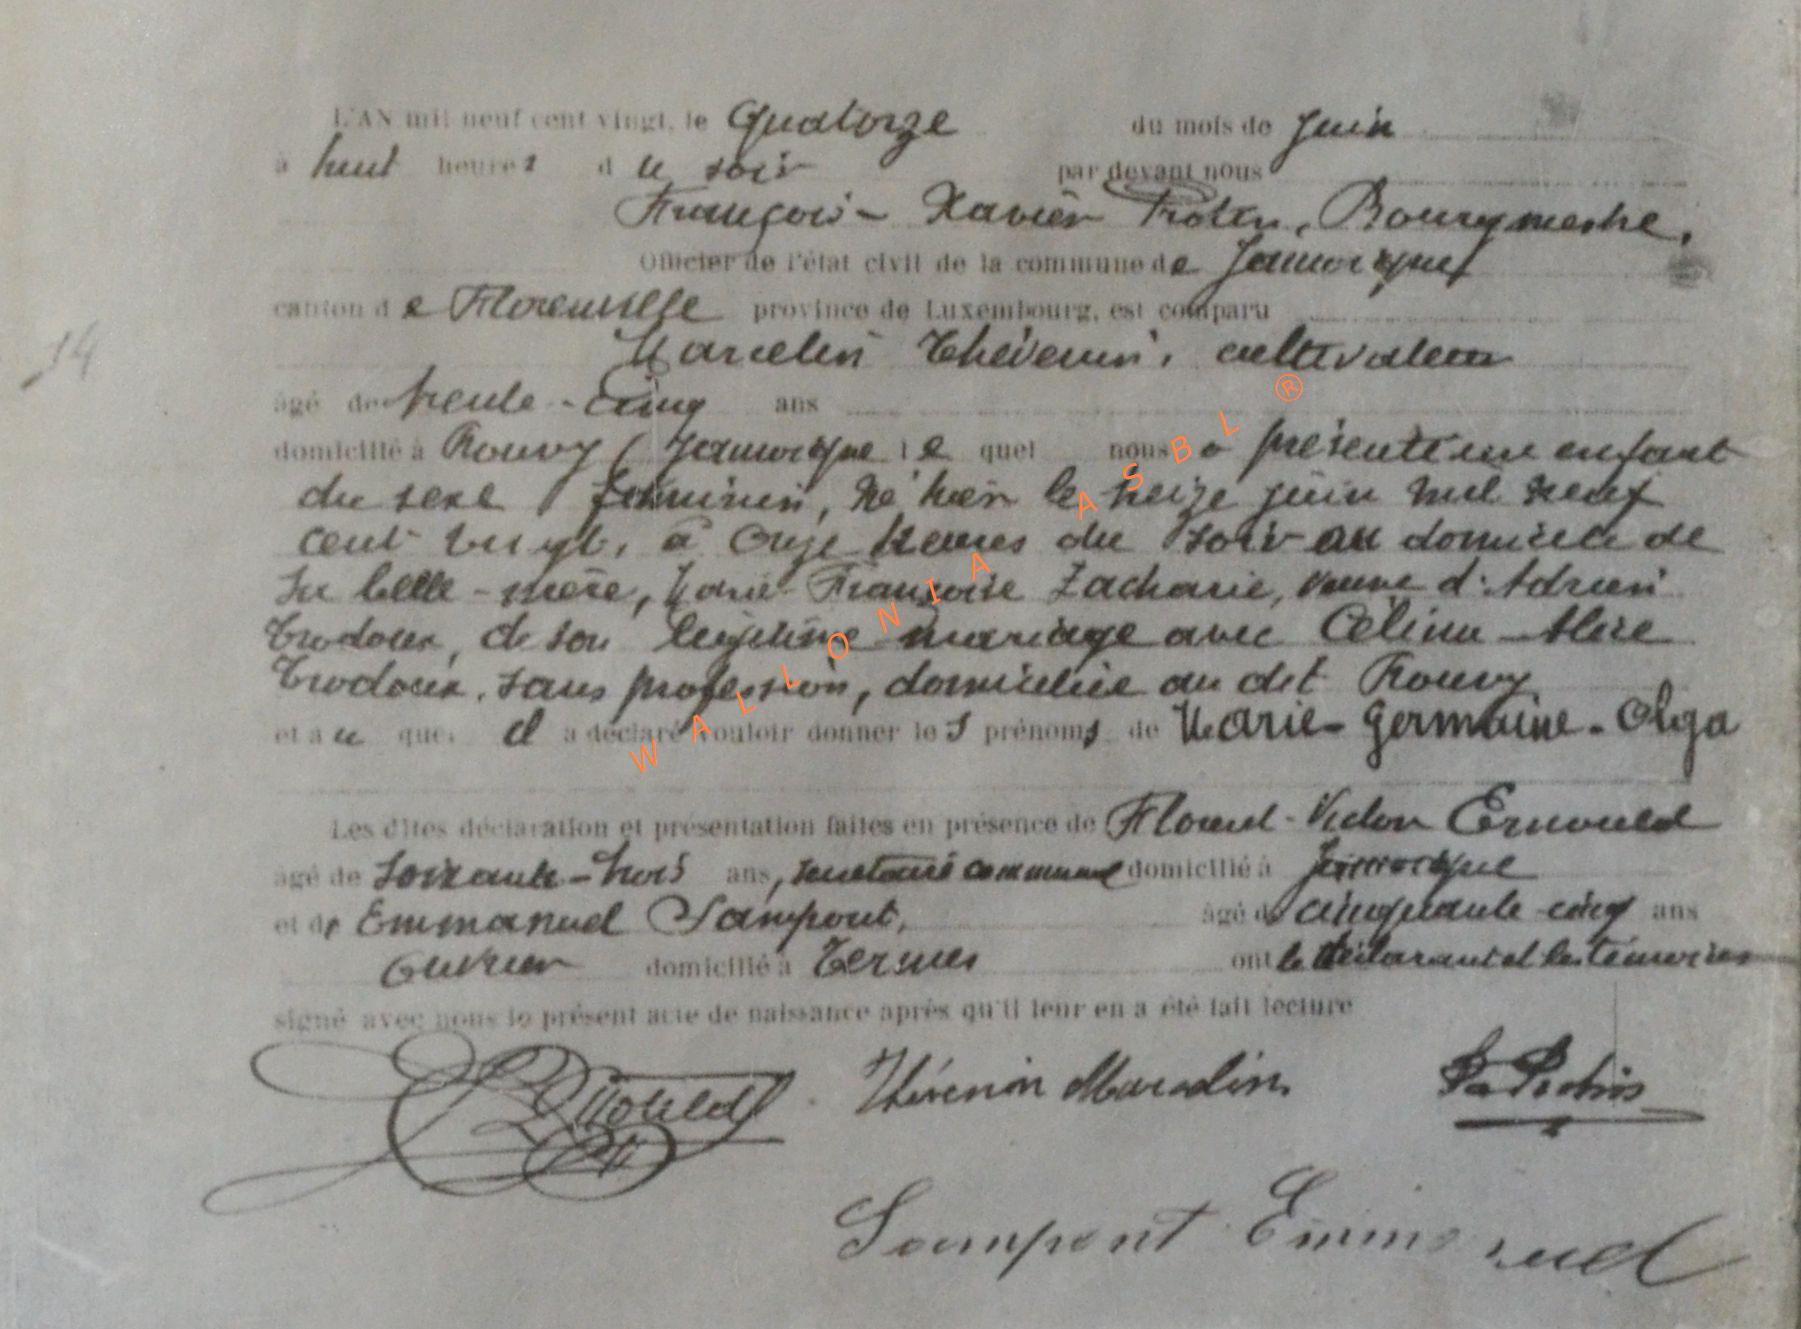 L'AN mil neuf cent vingt, le Quatorze du mois de Juin
à huit heures du soir par devant nous
François-Xavier Protin, Bourgmestre,
Officier de l'état civil de la commune de Jamoigne
canton de Florenville province de Luxembourg, est comparu
14
Marcelin Thévenin, cultivateur
âgé de trente-cinq ans
domicilié à Rouvy / Jamoigne le quel nous a présenté un enfant
du sexe féminin, né hier le treize juin mil neuf
cent vingt, à onze heures du soir au domicile de
sa belle-mère, Marie-Françoise Zacharie, veuve d'Adrien
Trodoux, de son légitime mariage avec Célina-Alice
Trodoux, sans profession, domiciliée au dit Rouvy
et au que il a déclaré vouloir donner les prénoms de Marie-Germaine-Olga
Les dites déclaration et présentation faites en présence de Florent-Victor Ernould
âgé de soixante-trois ans, secrétaire communal domicilié à Jamoigne
et de Emmanuel Sampont, âgé de cinquante-cinq ans
ouvrier domicilié à Termes ont le déclarant et les témoins
signé avec nous le présent acte de naissance après qu'il leur en a été fait lecture
Ernould Thévenin Marcelin Protin
Sampont Emmanuel
WALLONIA ASBL ®